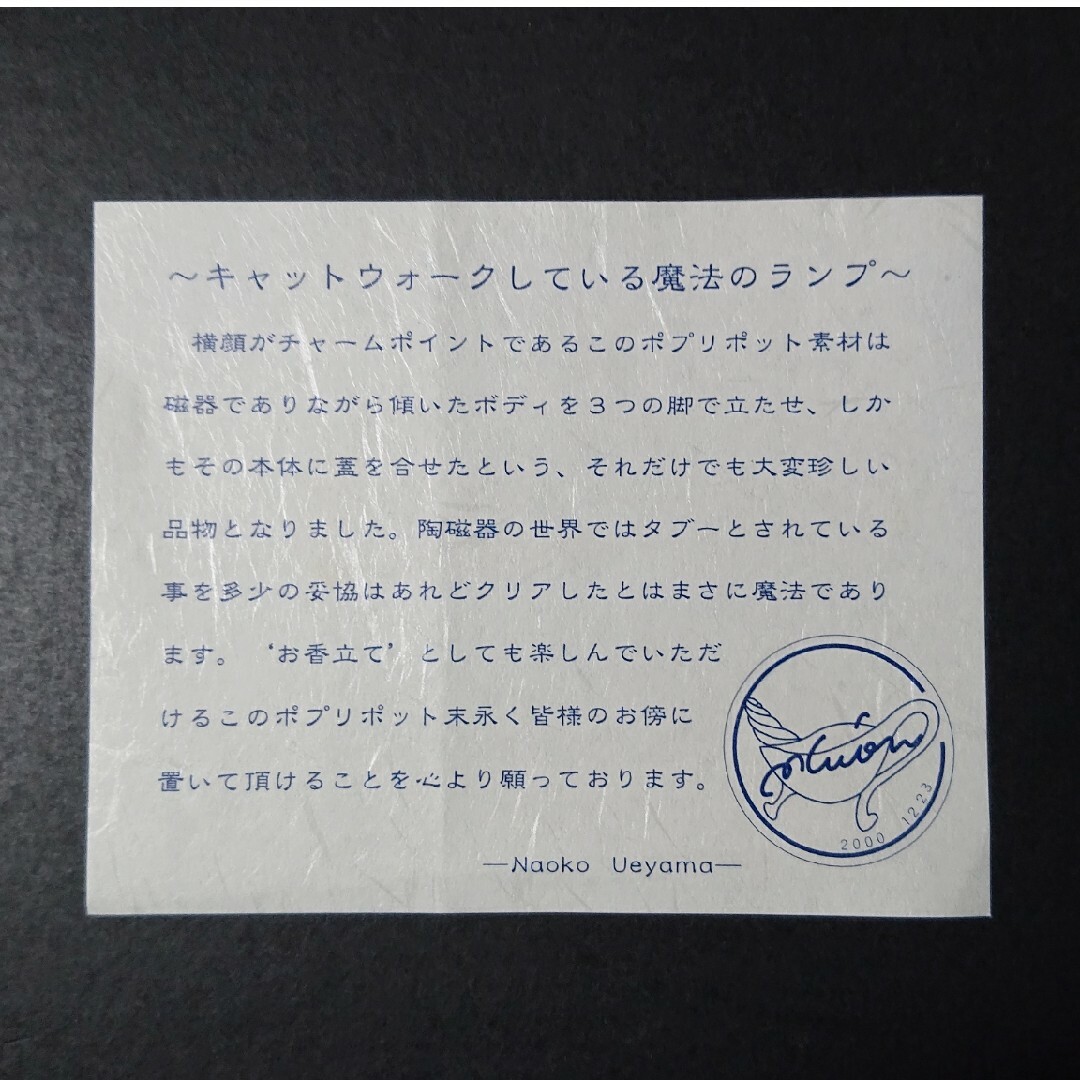 ～キャットウォークしている魔法のランプ～
横顔がチャームポイントであるこのポプリポット素材は
磁器でありながら傾いたボディを３つの脚で立たせ、しか
もその本体に蓋を合せたという、それだけでも大変珍しい
品物となりました。陶磁器の世界ではタブーとされている
事を多少の妥協はあれどクリアしたとはまさに魔法であり
ます。‘お香立て’としても楽しんでいただ
けるこのポプリポット末永く皆様のお傍に
置いて頂けることを心より願っております。
―Naoko Ueyama―
2000 12 23